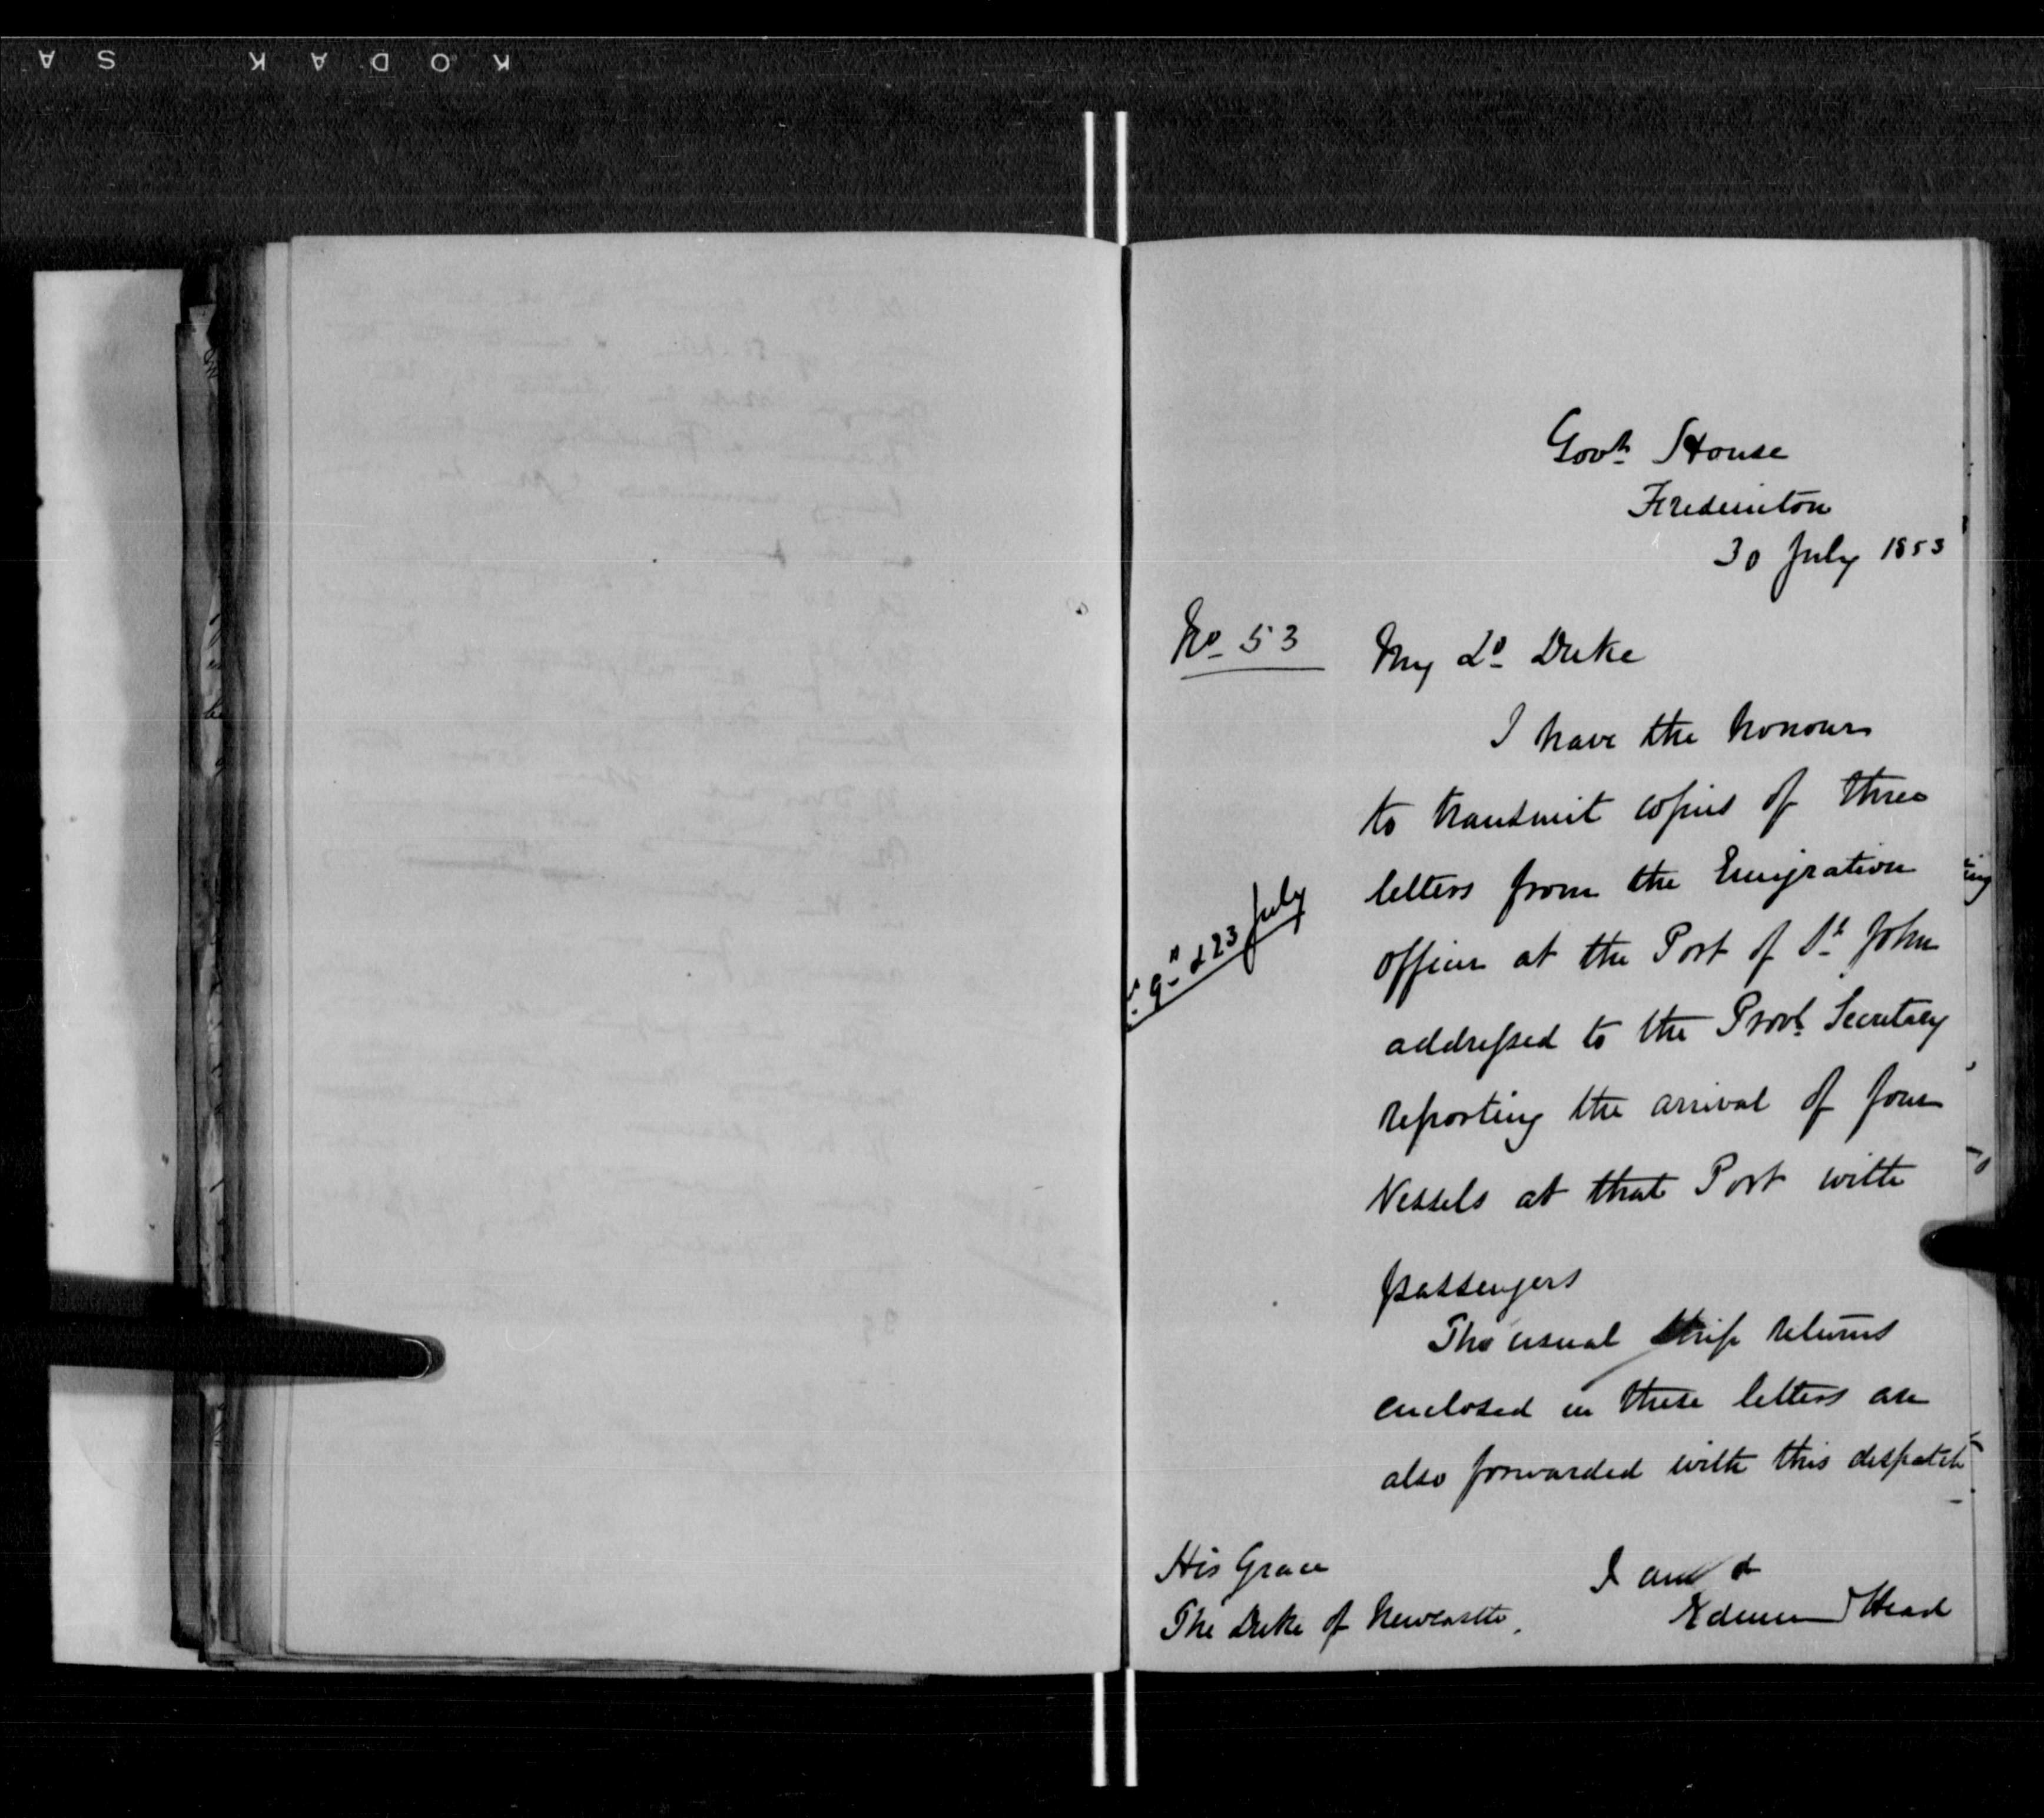 KODAK SA
Govt House
Fredericton
30 July 1853
No 53
My Ld Duke
I have the honour
to transmit copies of three
letters from the Emigration
9 & 23 July
officer at the Port of St John
addressed to the Provl Secretary
reporting the arrival of four
Vessels at that Port with
passengers
The usual Ship returns
enclosed in these letters are
also forwarded with this despatch
His Grace
The Duke of Newcastle.
I am &
Edmund Head